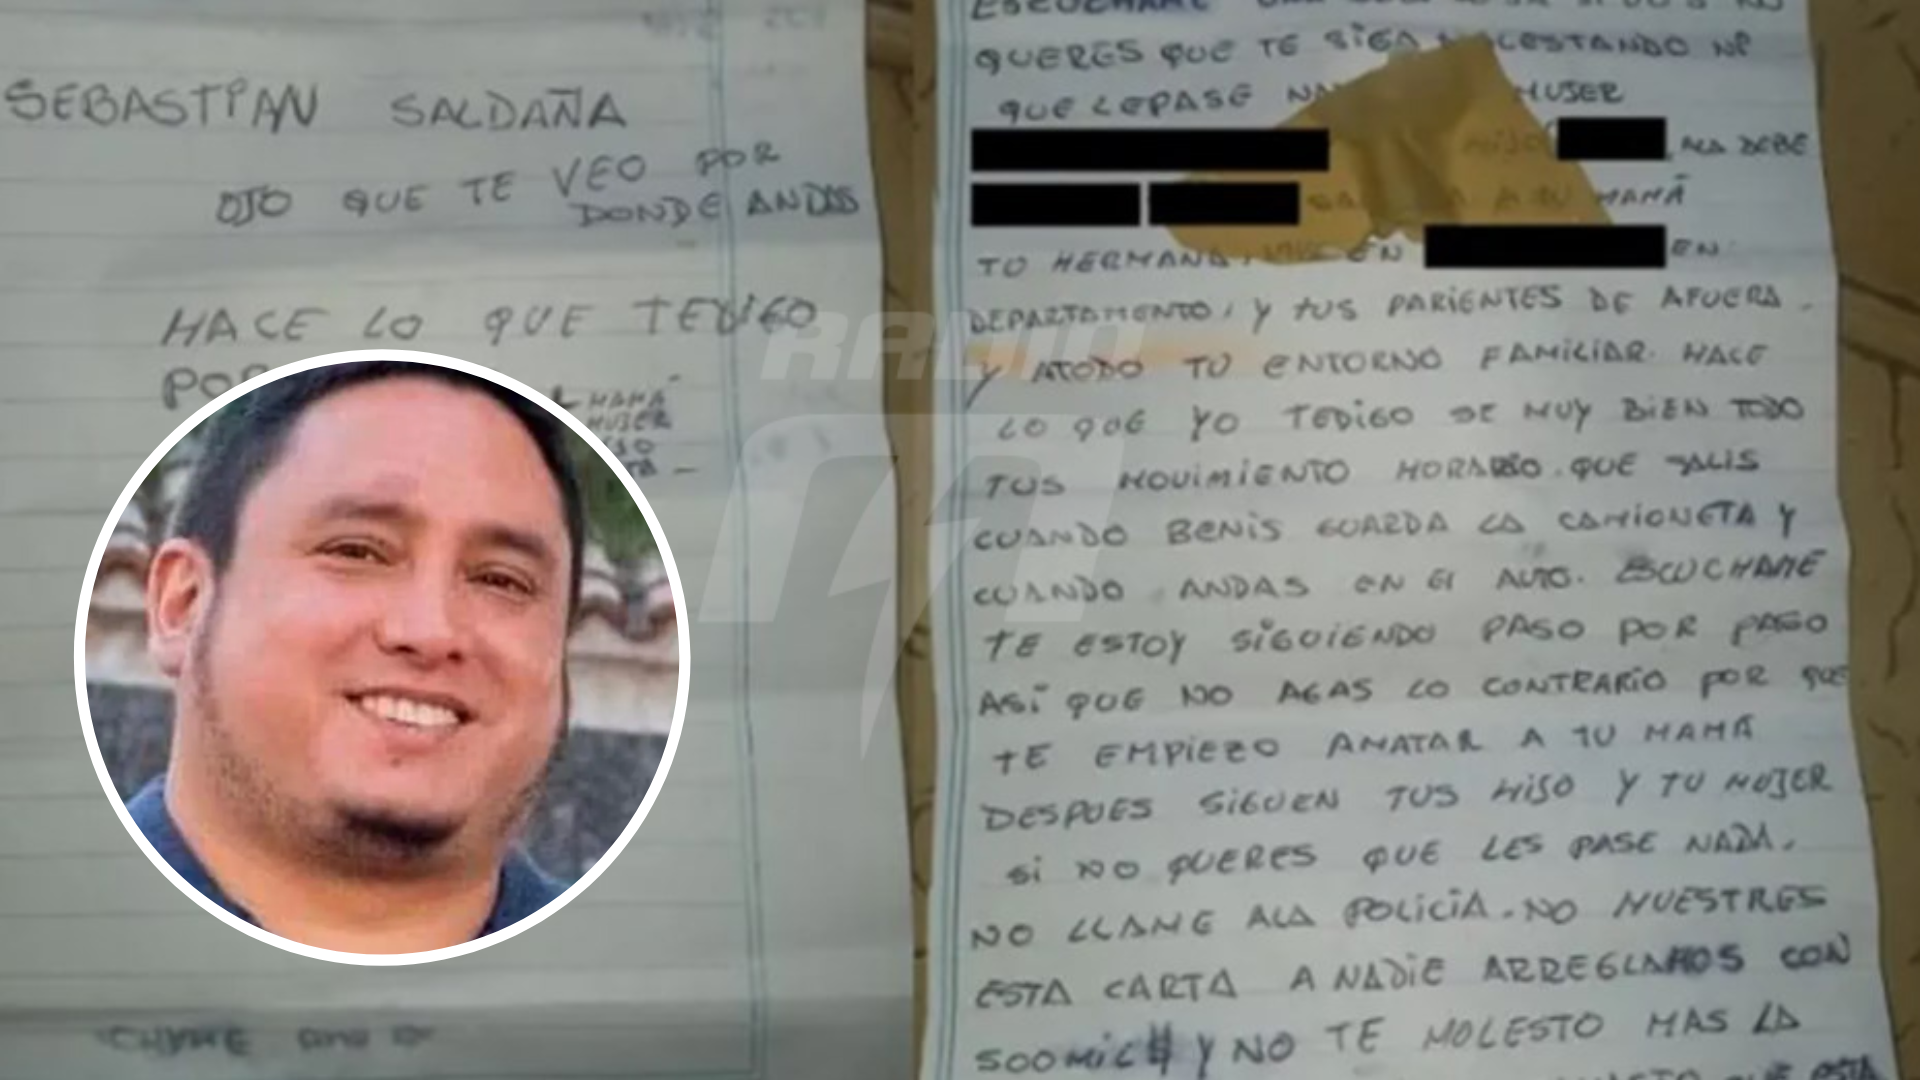 SEBASTIAN SALDAÑA
OJO QUE TE VEO POR
DONDE ANDAS
HACE LO QUE TEDIGO
MAMÁ
MUJER
ESCUCHAME
QUERES QUE TE SIGA MOLESTANDO NI
QUE LEPASE MUJER
HIJO ALA BEBE
A TU MAMÁ
TU HERMANA, VIVE EN EN
DEPARTAMENTO, Y TUS PARIENTES DE AFUERA.
Y ATODO TU ENTORNO FAMILIAR. HACE
LO QUE YO TEDIGO SE MUY BIEN TODO
TUS MOUIMIENTO HORARIO. QUE SALIS
CUANDO BENIS GUARDA LA CAMIONETA Y
CUANDO ANDAS EN El AUTO. ESCUCHAME
TE ESTOY SIGUIENDO PASO POR PASO
ASI QUE NO AGAS LO CONTRARIO POR QUE
TE EMPIEZO AMATAR A TU MAMÁ
DESPUES SIGUEN TUS HIJO Y TU MUJER
SI NO QUERES QUE LES PASE NADA.
NO LLAME ALA POLICIA. NO MUESTRES
ESTA CARTA A NADIE ARREGLAMOS CON
500MIL$ Y NO TE MOLESTO MAS LA
RADIO